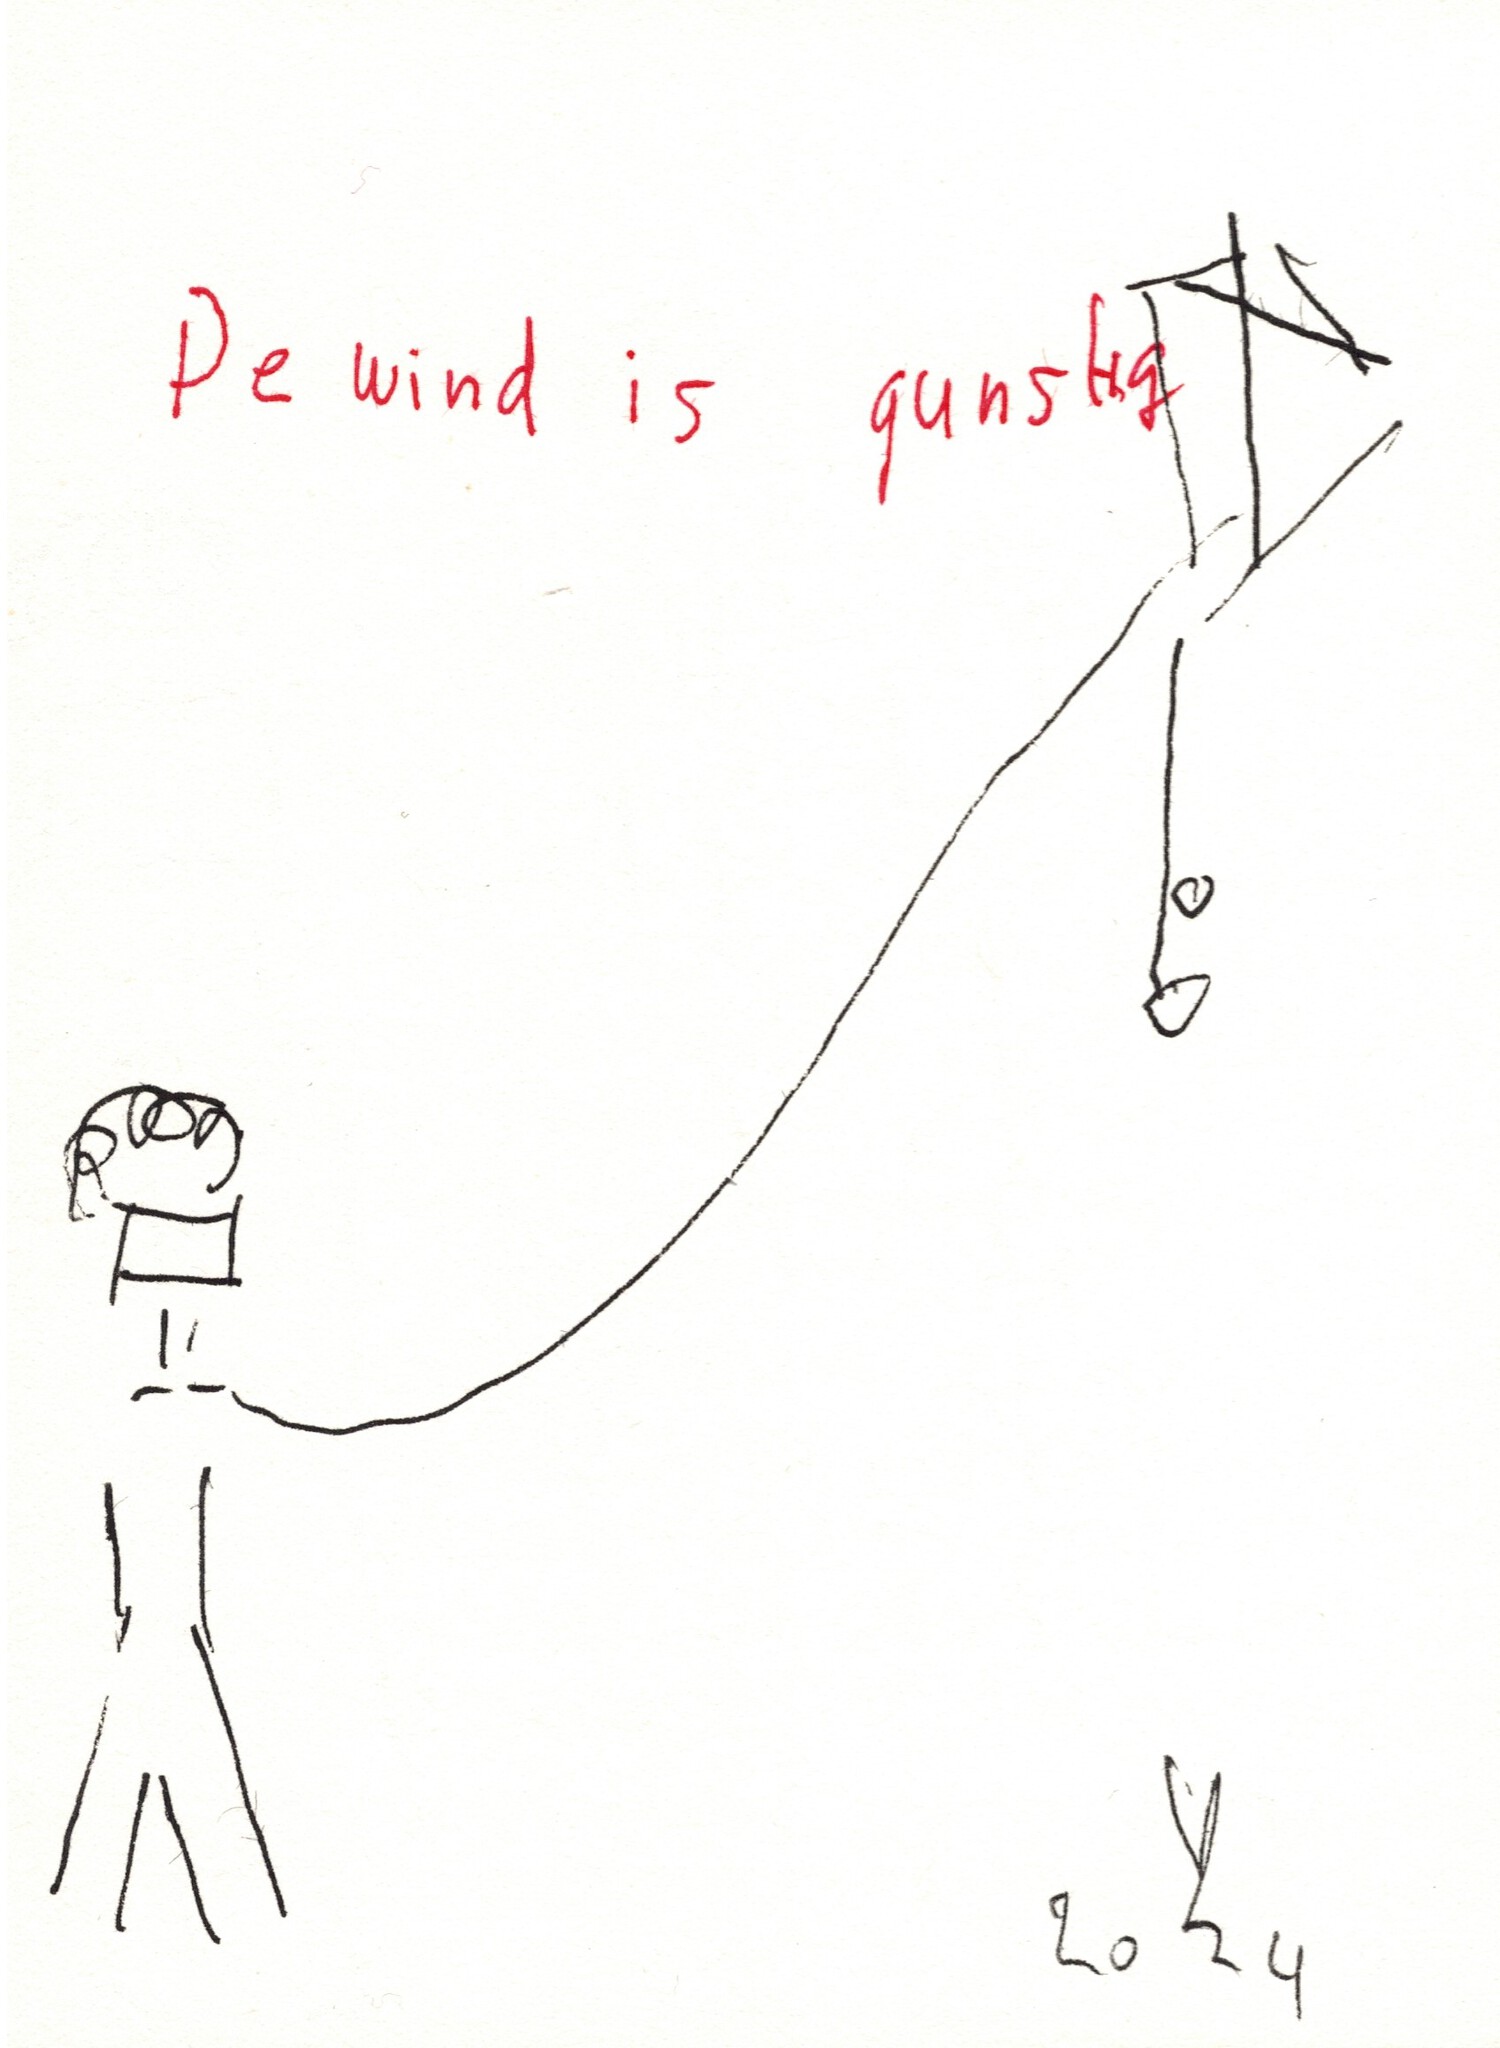 De wind is gunstig
2024